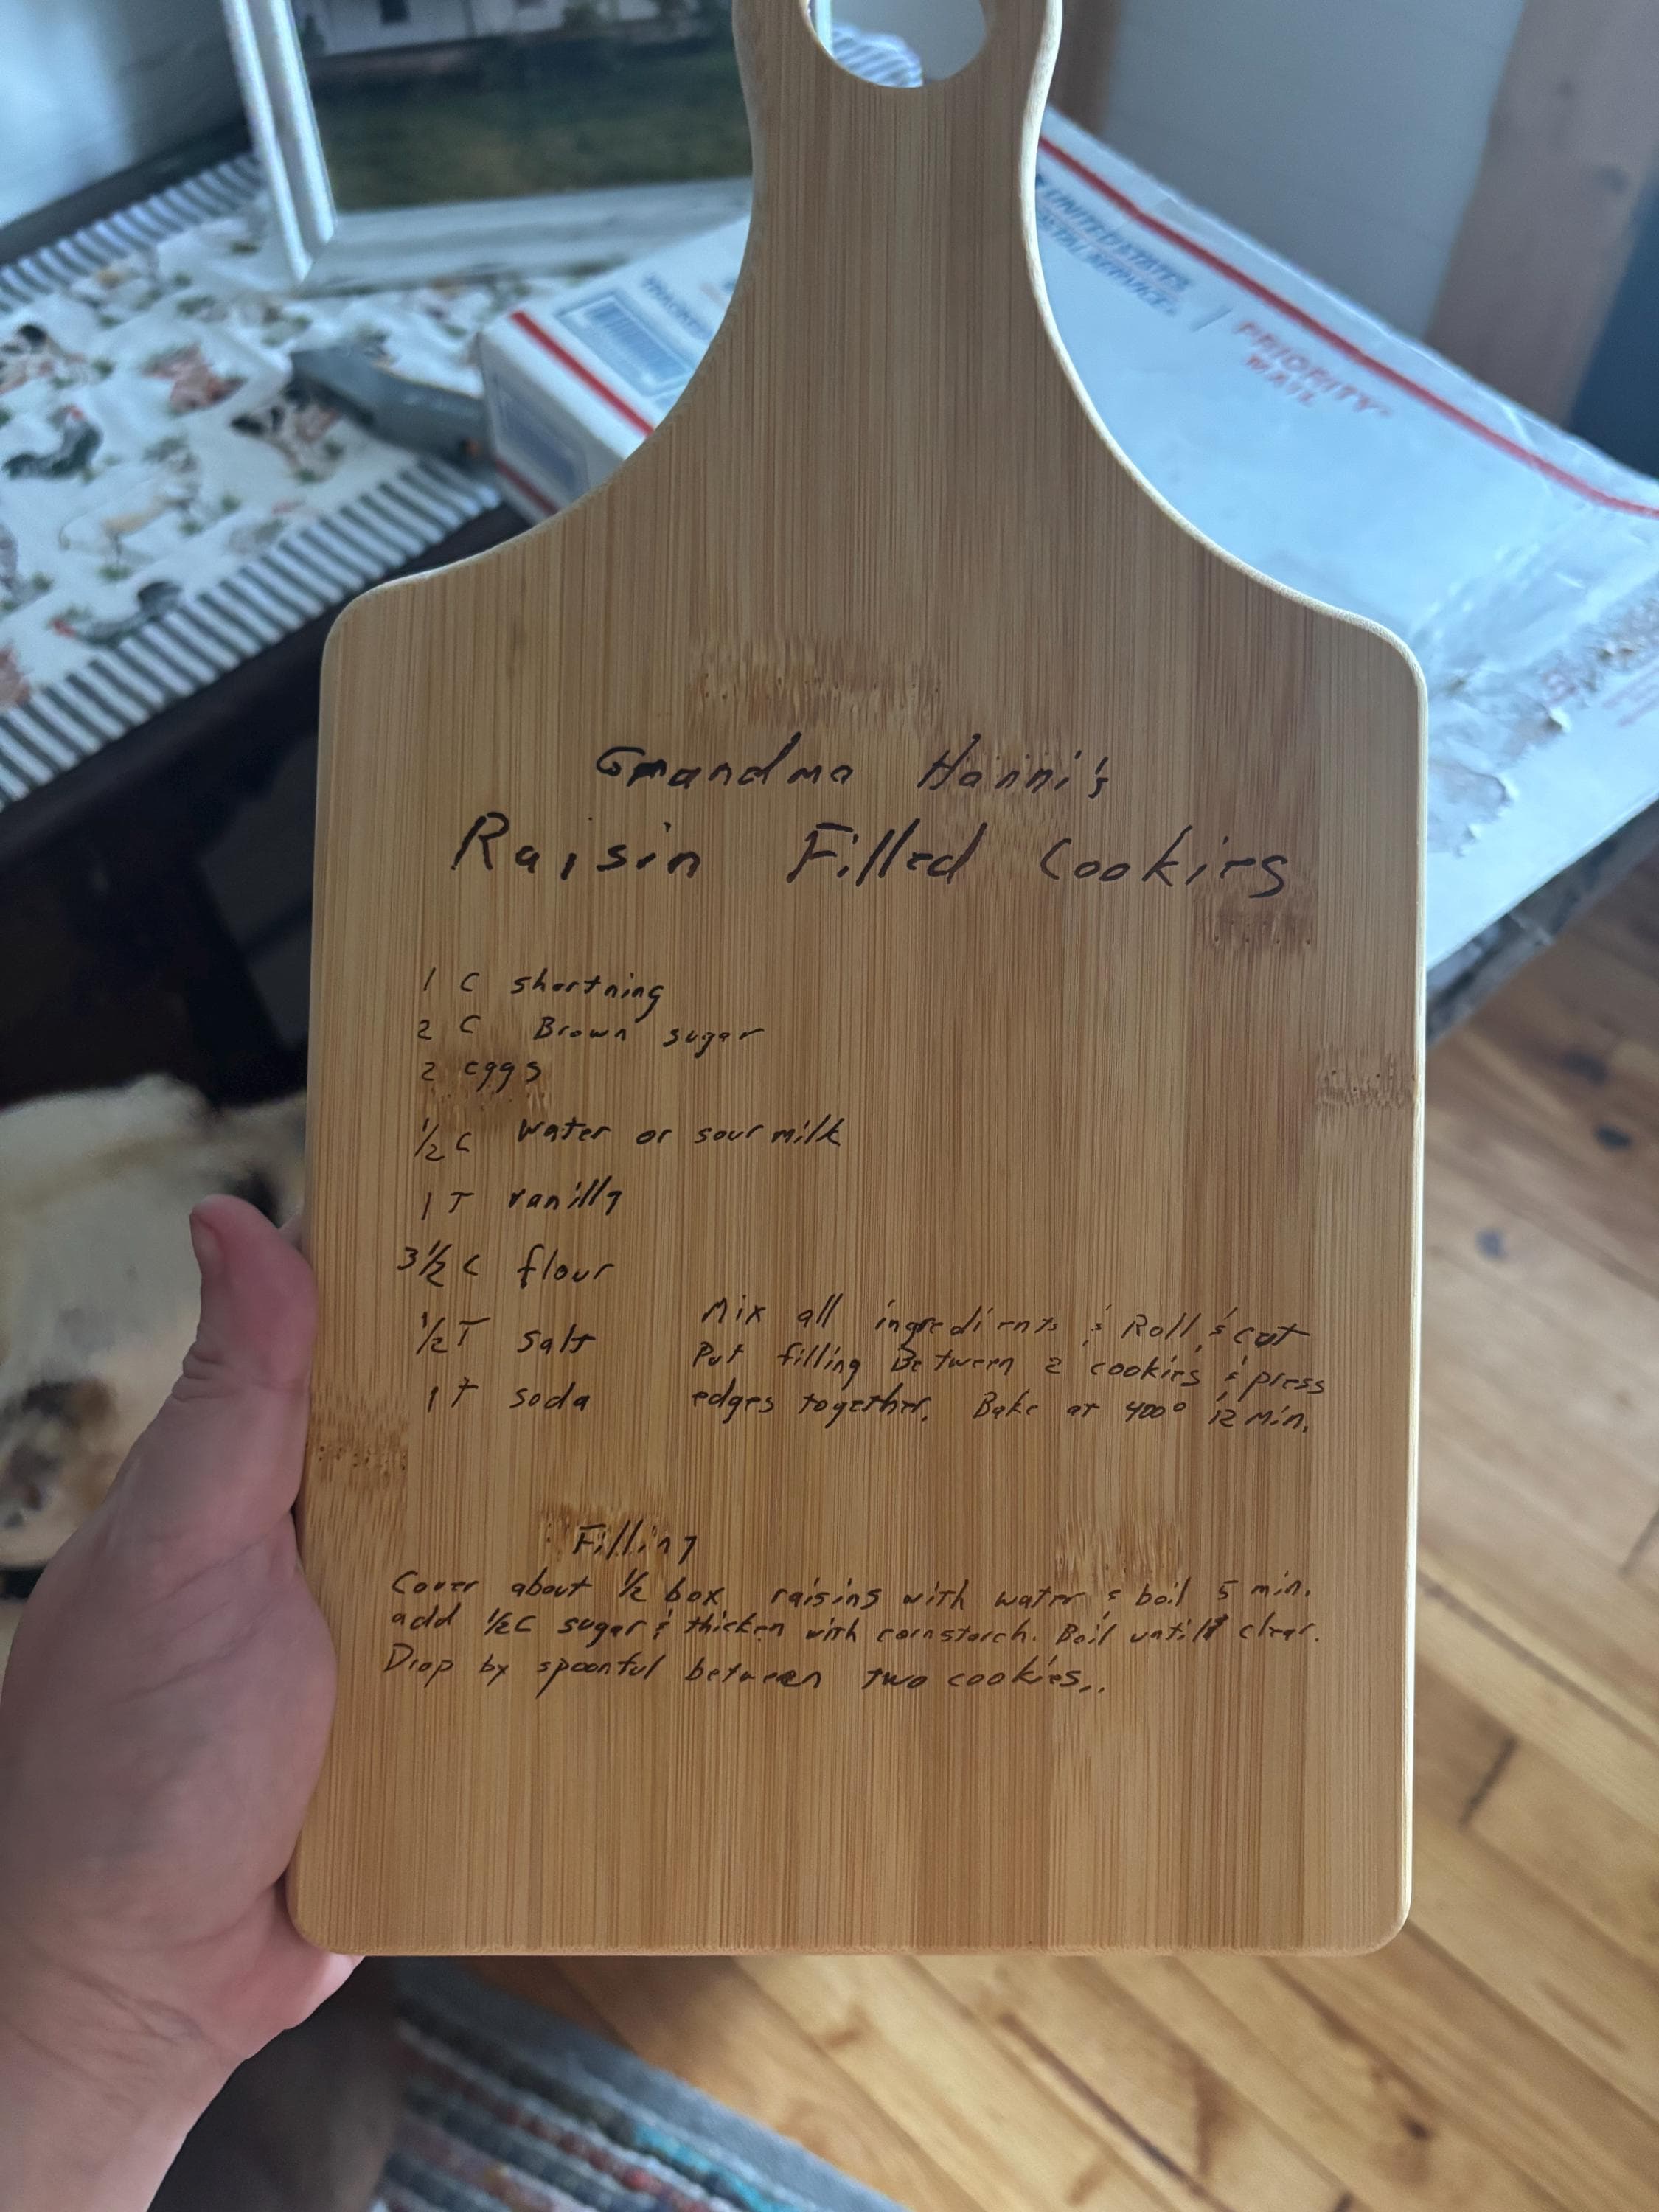 UNITED STATES
POSTAL SERVICE®
PRIORITY®
MAIL
Grandma Hanni's
Raisin Filled Cookies
1 C shortning
2 C Brown sugar
2 eggs
1/2 C water or sour milk
1 T vanilla
3 1/2 C flour
1/2 T salt
1 T soda
Mix all ingredients & Roll & cut
Put filling Between 2 cookies & press
edges together. Bake at 400° 12 Min.
Filling
Cover about 1/2 box raisins with water & boil 5 min.
add 1/2C sugar & thicken with cornstarch. Boil until clear.
Drop by spoonful between two cookies..